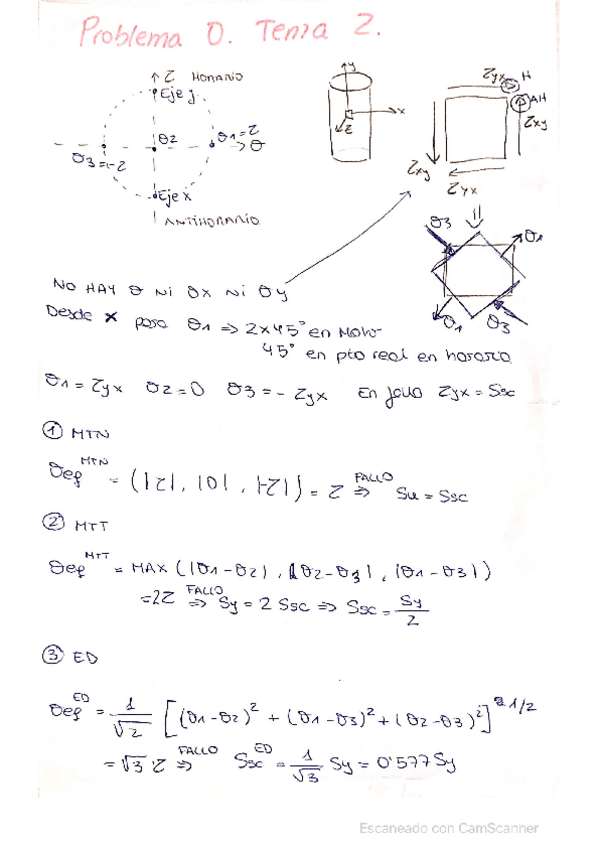 Problema 0. Tema 2.
τ HORARIO
Eje y
σ2
σ1=τ
σ
σ3=-τ
Eje x
ANTIHORARIO
y
x
z
τyx H
AH
τxy
τxy
τyx
σ3
σ1
σ1
σ3
NO HAY σ NI σx NI σy
Desde x para σ1 => 2x45° en Mohr
45° en pto real en horario.
σ1 = τyx σ2=0 σ3 = - τyx En fallo τyx = Ssc
① MTN
σeq MTN = (|τ|, |0|, |-τ|) = τ FALLO => Su = Ssc
② MTT
σeq MTT = MAX (|σ1-σ2|, |σ2-σ3|, |σ1-σ3|)
=2τ FALLO => Sy = 2 Ssc => Ssc = Sy/2
③ ED
σeq ED = 1/√2 [(σ1-σ2)² + (σ1-σ3)² + (σ2-σ3)²]^1/2
= √3 τ FALLO => Ssc ED = 1/√3 Sy = 0'577 Sy
Escaneado con CamScanner